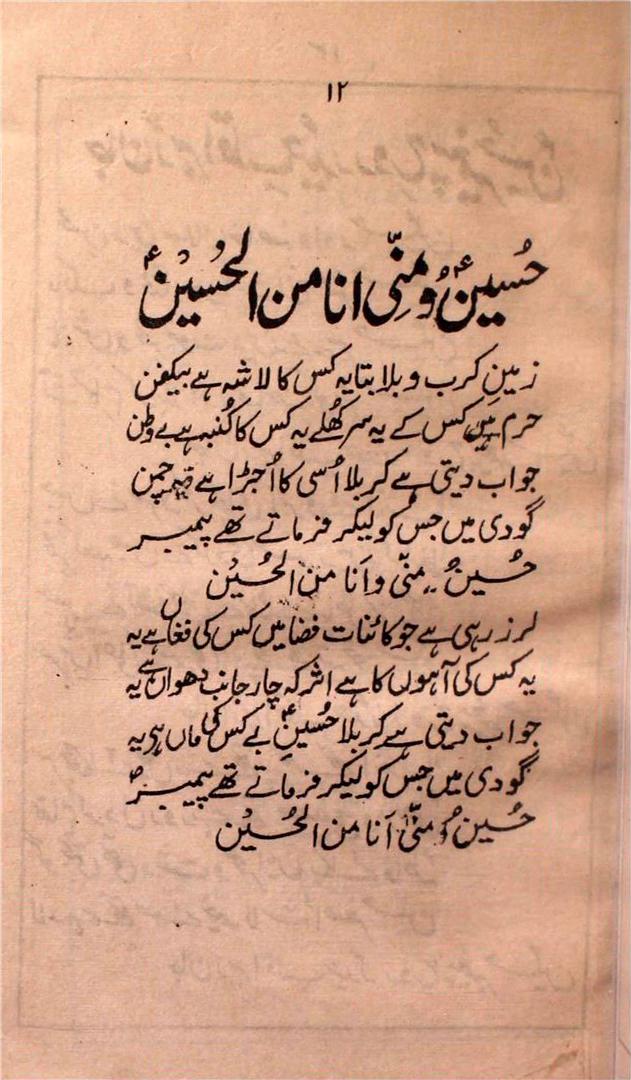 ۱۲
حُسینؑ وُمنِّی انا من الحُسینؑ
زمینِ کرب و بلا بتا یہ کس کا لاشہ ہے بیکفن
حرم ہیں کس کے یہ سر کھلے یہ کس کا کُنبہ ہے بے وطن
جواب دیتی ہے کربلا اُسی کا اُجڑا ہے چمن
گودی میں جس کو لیکر فرماتے تھے پیمبر
حُسینُ منّی و اَنا من الحُسیْن
لرز رہی ہے جو کائنات فضا میں کس کی فغاں ہے یہ
یہ کس کی آہوں کا ہے اثر کہ چار جانب دھواں ہے یہ
جواب دیتی ہے کربلا حُسینِؑ بے کس کی ماں ہی یہ
گودی میں جس کو لیکر فرماتے تھے پیمبرؐ
حُسین وُ منّی اَنا من الحُسیْن